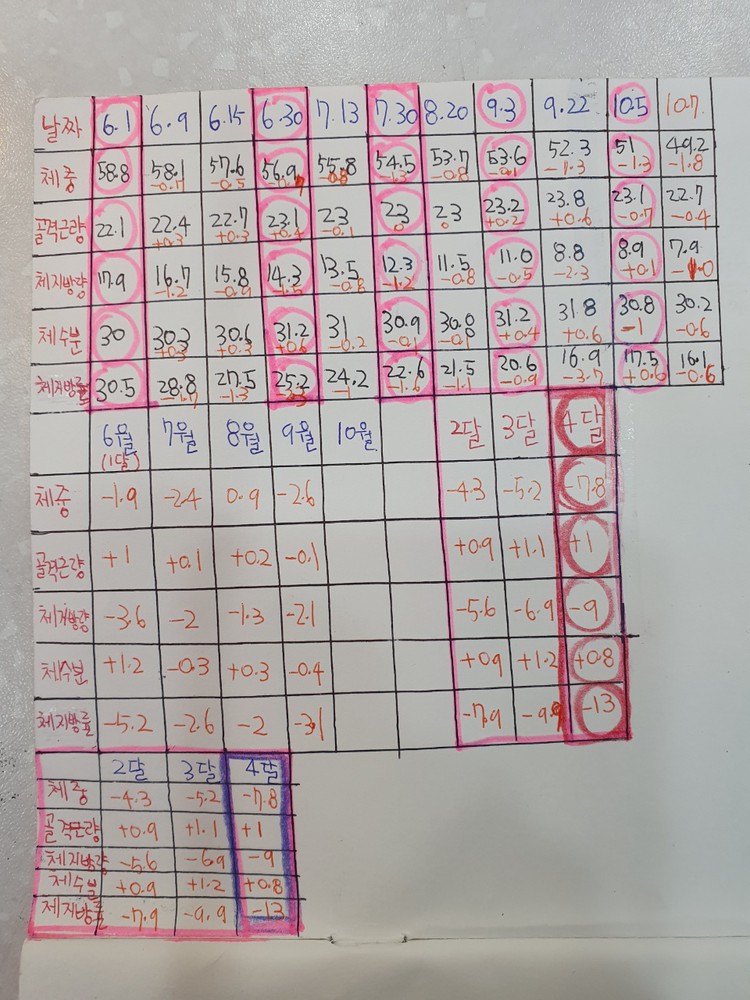 날짜 6.1 6.9 6.15 6.30 7.13 7.30 8.20 9.3 9.22 10.5 10.7
체중 58.8 58.1 57.6 56.9 55.8 54.5 53.7 53.6 52.3 51 49.2
-0.7 -0.5 -0.8 -1.3 -0.8 -0.1 -1.3 -1.3 -1.8
골격근량 22.1 22.4 22.7 23.1 23 23 23 23.2 23.8 23.1 22.7
+0.3 +0.3 +0.4 -0.1 0 0 +0.2 +0.6 -0.7 -0.4
체지방량 17.9 16.7 15.8 14.3 13.5 12.3 11.5 11.0 8.8 8.9 7.9
-1.2 -0.9 -1.5 -0.8 -1.2 -0.8 -0.5 -2.3 +0.1 -1.0
체수분 30 30.3 30.6 31.2 31 30.9 30.8 31.2 31.8 30.8 30.2
+0.3 +0.3 +0.6 -0.2 -0.1 -0.1 +0.4 +0.6 -1 -0.6
체지방률 30.5 28.8 27.5 25.2 24.2 22.6 21.5 20.6 16.9 17.5 16.1
-1.7 -1.3 -1 -1.6 -1.1 -0.9 -3.7 +0.6 -0.6
6월 7월 8월 9월 10월 2달 3달 4달
(1달)
체중 -1.9 -2.4 0.9 -2.6 -4.3 -5.2 -7.8
골격근량 +1 +0.1 +0.2 -0.1 +0.9 +1.1 +1
체지방량 -3.6 -2 -1.3 -2.1 -5.6 -6.9 -9
체수분 +1.2 -0.3 +0.3 -0.4 +0.9 +1.2 +0.8
체지방률 -5.2 -2.6 -2 -3.1 -7.9 -9.9 -13
2달 3달 4달
체중 -4.3 -5.2 -7.8
골격근량 +0.9 +1.1 +1
체지방량 -5.6 -6.9 -9
체수분 +0.9 +1.2 +0.8
체지방률 -7.9 -9.9 -13